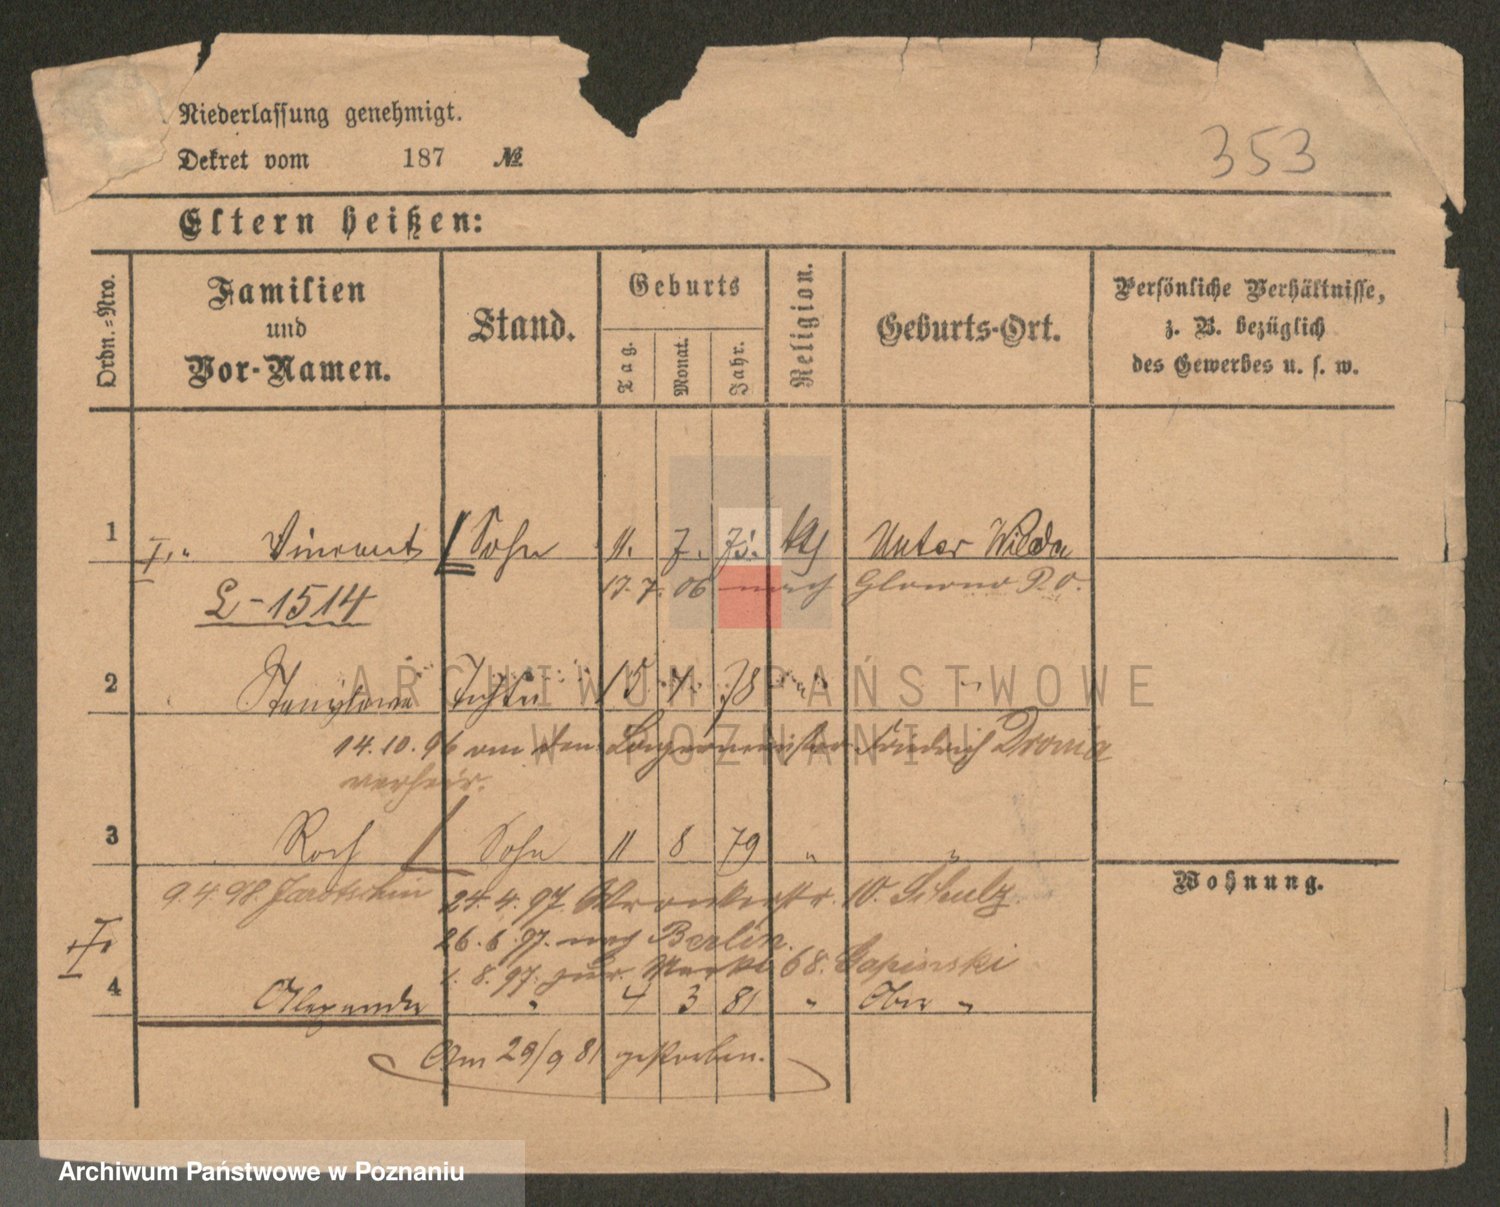 Niederlassung genehmigt.
Dekret vom 187 №
353
Eltern heißen:
Ordn.-Nro.
Familien und Vor-Namen.
Stand.
Geburts
Tag.
Monat.
Jahr.
Religion.
Geburts-Ort.
Persönliche Verhältnisse,
z. B. bezüglich
des Gewerbes u. s. w.
1 Vincent Sohn 11. 7. kth Unter Wilda
17. 7. 06 nach Glowno P. O.
L-1514
2 Stanislawa Tochter 15 78
14. 10. 96 an den Friedrich Droma
verheir.
3 Roch Sohn 11 8 79 " "
9. 4. 98. Jarotschin 24. 4. 97. 10. Schulz
26. 6. 97. nach Berlin.
1. 8. 97. zur. 68.
4 Alexander " 4 3 81 " Ober "
Am 29/9 81 gestorben.
Wohnung.
ARCHIWUM PAŃSTWOWE
W POZNANIU
Archiwum Państwowe w Poznaniu